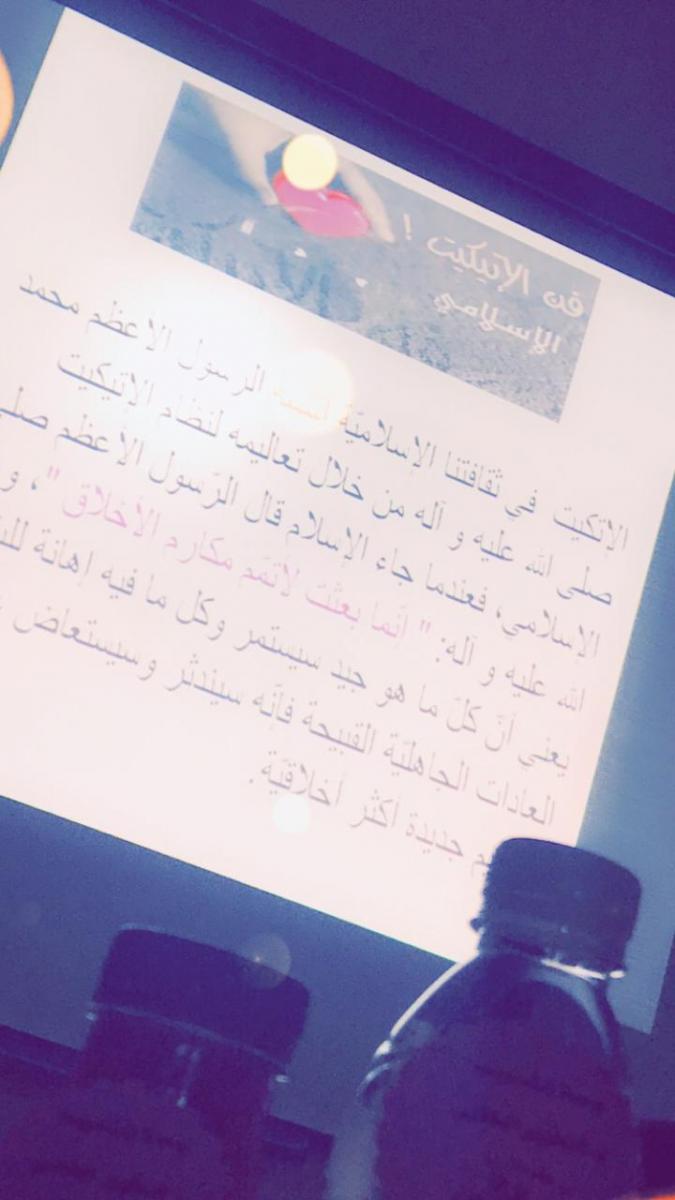 فن الإتيكيت !
الإسلامي
الإتكيت في ثقافتنا الإسلاميّة الرسول الأعظم محمد
صلى الله عليه و آله من خلال تعاليمه لنظام الإتيكيت
الإسلامي، فعندما جاء الإسلام قال الرّسول الأعظم
الله عليه و آله: " إنما بعثت لأتمّم مكارم الأخلاق "، و
يعني أنّ كلّ ما هو جيد سيستمر وكل ما فيه إهانة
العادات الجاهليّة القبيحة فإنّه سيندثر وسيستعاض
جديدة أكثر أخلاقيّة.